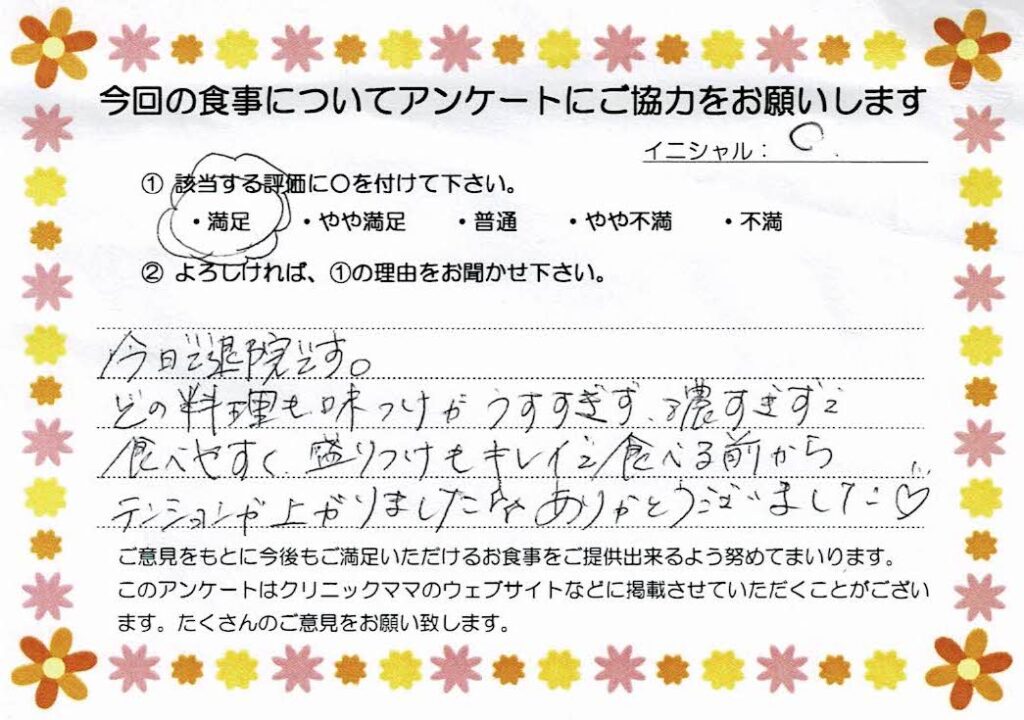 今回の食事についてアンケートにご協力をお願いします
イニシャル： O.
① 該当する評価に〇を付けて下さい。
・満足 ・やや満足 ・普通 ・やや不満 ・不満
② よろしければ、①の理由をお聞かせ下さい。
今日で退院です。
どの料理も味つけがうすすぎず、濃すぎずで
食べやすく、盛りつけもキレイで食べる前から
テンションが上がりました♪☆ありがとうございました♡
ご意見をもとに今後もご満足いただけるお食事をご提供出来るよう努めてまいります。
このアンケートはクリニックママのウェブサイトなどに掲載させていただくことがござい
ます。たくさんのご意見をお願い致します。